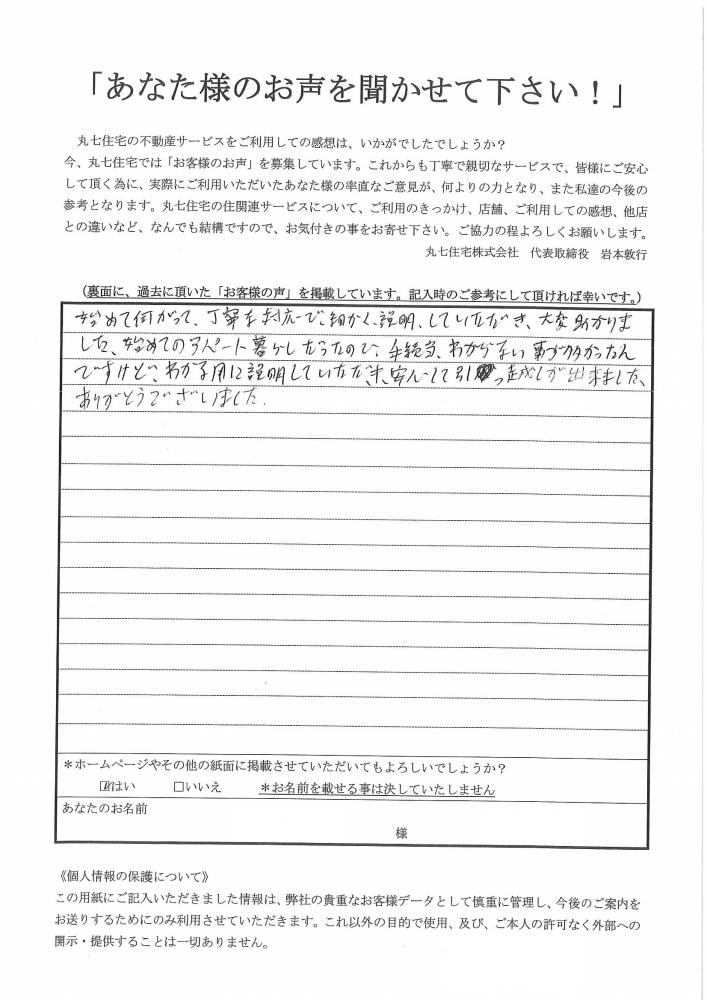 「あなた様のお声を聞かせて下さい！」
丸七住宅の不動産サービスをご利用しての感想は、いかがでしたでしょうか？
今、丸七住宅では「お客様のお声」を募集しています。これからも丁寧で親切なサービスで、皆様にご安心
して頂く為に、実際にご利用いただいたあなた様の率直なご意見が、何よりの力となり、また私達の今後の
参考となります。丸七住宅の住関連サービスについて、ご利用のきっかけ、店舗、ご利用しての感想、他店
との違いなど、なんでも結構ですので、お気付きの事をお寄せ下さい。ご協力の程よろしくお願いします。
丸七住宅株式会社　代表取締役　岩本敦行
（裏面に、過去に頂いた「お客様の声」を掲載しています。記入時のご参考にして頂ければ幸いです。）
始めて伺がって、丁寧な対応で、細かく、説明、していただき、大変助かりま
した、始めてのアパート暮らし なので、手続当、わからない事が多かったん
ですけど、わかる用に説明していただき、安心して引っ越しが出来ました、
ありがとうございました.
＊ホームページやその他の紙面に掲載させていただいてもよろしいでしょうか？
☑はい　□いいえ　＊お名前を載せる事は決していたしません
あなたのお名前
様
《個人情報の保護について》
この用紙にご記入いただきました情報は、弊社の貴重なお客様データとして慎重に管理し、今後のご案内を
お送りするためにのみ利用させていただきます。これ以外の目的で使用、及び、ご本人の許可なく外部への
開示・提供することは一切ありません。